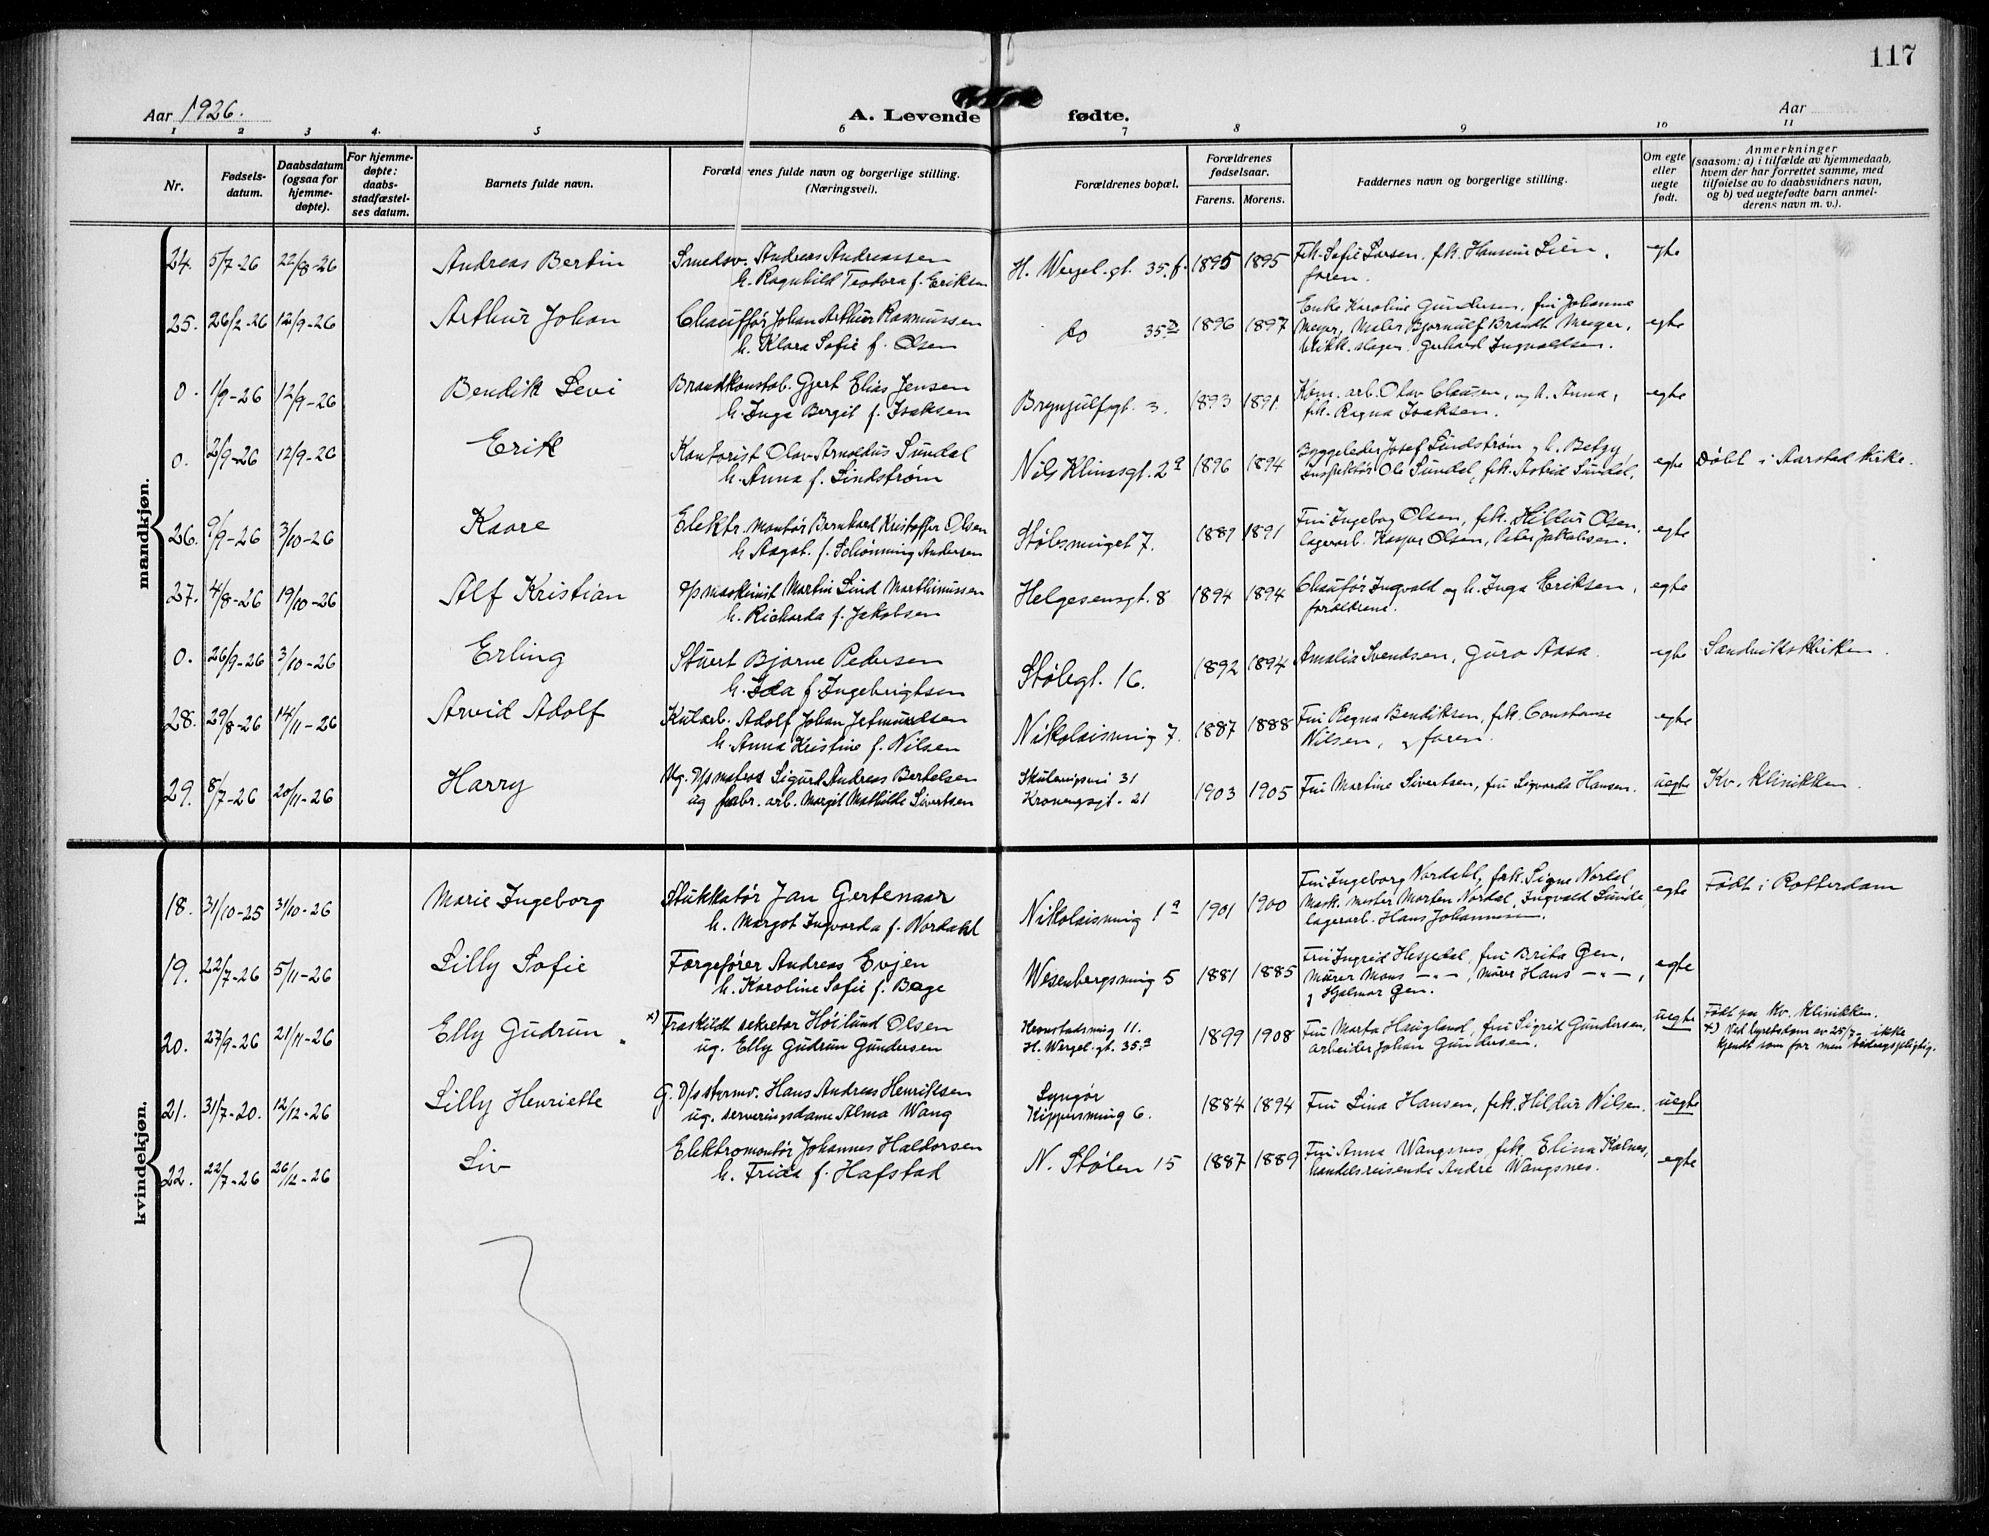 117
Aar 1926.
A. Levende fødte.
Aar
1 2 3 4. 5 6 7 8 9 10 11
Nr.
Fødsels-
datum.
Daabsdatum
(ogsaa for
hjemme-
døpte).
For hjemme-
døpte:
daabs-
stadfæstel-
ses datum.
Barnets fulde navn.
Forældrenes fulde navn og borgerlige stilling.
(Næringsvei).
Forældrenes bopæl.
Forældrenes
fødselsaar.
Farens. Morens.
Faddernes navn og borgerlige stilling.
Om egte
eller
uegte
født.
Anmerkninger
(saasom: a) i tilfælde av hjemmedaab,
hvem der har forrettet samme, med
tilføielse av to daabsvidners navn,
og b) ved uegtefødte barn anmel-
derens navn m. v.).
mandkjøn.
24. 5/7-26 22/8-26 Andreas Bertin
Smedsv. Andreas Andreassen
h. Ragnhild Teodora f. Eriksen
H. Wergel. gt. 35.f. 1895 1895
Frk. Sofie Larsen, frk. Hansine Lien,
faren.
egte
25. 26/2-26 12/9-26 Arthur Johan
Chauffør Johan Arthur Rasmussen
h. Klara Sofie f. Olsen
do 35 1896 1897
Enke Karoline Gundersen, fru Johanne
Meyer, Maler Bjornulf Brandt Meyer,
blikk. slager. Gerhard Ingvaldsen.
egte
0. 1/9-26 12/9-26 Bendik Levi
Brandkonstab. Gjert Elias Jensen
h. Inga Bergit f. Isaksen
Brynjulfgt. 3. 1893 1891.
Kom. arb. Olav Claussen, og h. Anna,
frk. Ragna Isaksen.
egte
0. 2/9-26 12/9-26 Erik
Kontorist Olav Arnoldus Sundal
h. Anna f. Lindstrøm
Nils Klimsgt. 2a 1896 1894
Byggeleder Josef Lindstrøm og h. Betzy
Inspektør Ole Sundal, frk. Astrid Sundal.
egte Døbt i Aarstad kirke.
26. 9/9-26 3/10-26 Kaare
Elektr. montør Bernhard Kristoffer Olsen
h. Aagot. f. Schønning Andersen
Stølsmuget 7. 1889 1891
Fru Ingebog Olsen, frk. Hildur Olsen,
lagerarb. Kaspar Olsen, Peter Jakobsen.
egte
27. 4/8-26 19/10-26 Alf Kristian
D/s maskinist Martin Lind Marthinussen
h. Richarda f. Jakobsen
Helgesensgt. 8 1894 1894
Chaufør Ingvald og h. Inga Eriksen,
forældrene.
egte
0. 26/9-26 3/10-26 Erling
Stuert Bjarne Pedersen
h. Ida f Ingebrigtsen
Stølegt. 16. 1892 1894
Amalia Svendsen, Guro Aasa.
egte Sandvikskirken.
28. 29/8-26 14/11-26 Arvid Adolf
Kularb. Adolf Johan Jetmundsen
h. Anna Kristine f. Nilsen
Nikolaismug 7. 1887 1888
Fru Ragna Bendiksen, frk. Constanse
Nilsen, og faren.
egte
29. 8/7-26 20/11-26 Harry
Ug. D/s matros Sigurd Andreas Bertelsen
ug fabr. arb. Margit Mathilde Sivertsen
Skuteviksvei 31
Kronengsgt. 21
1903 1905
Fru Martine Sivertsen, fru Sigvarda Hansen.
uegte Kv. klinikken.
kvindekjøn.
18. 31/10-25 31/10-26 Marie Ingeborg
Stukkatør Jan Gertenaar
h. Margot Ingvarda f. Nordahl
Nikolaismug 1a 1901 1900
Fru Ingeborg Nordahl, frk. Signe Nordal,
Mask. mester Morten Nordal, Ingvald Sunde,
lagerarb. Hans Johannesen.
egte Født i Rotterdam
19. 22/7-26 5/11-26 Lilly Sofie
Færgefører Andreas Evjen
h. Karoline Sofie f. Bøge
Wesenbergsmug 5 1881 1885
Fru Ingrid Hesjedal, fru Brita Gen,
Murer Mons —"—, Murer Hans —"—,
og Hjalmar Gen.
egte
20. 27/9-26 21/11-26 Elly Gudrun
x) Fraskildt sekretær Høilund Olsen
ug. Elly Gudrun Gundersen
11.
H. Wergel. gt. 35.a
1899 1908
Fru Marta Haugland, fru Sigrid Gundersen,
arbeider Johan Gundersen.
uegte Født paa Kv. klinikken.
x) Ved byretsdom av 25/7- ikke
kjendt som far men bidragspligtig.
21. 31/7-20. 12/12-26 Lilly Henriette
G. D/s styrmd. Hans Andreas Henriksen
ug. serveringsdame Alma Wang
Lyngør
Kippersmug 6.
1884 1894
Fru Lina Hansen, frk. Hildur Nilsen.
uegte
22. 22/7-26 26/12-26 Liv
Elektromontør Johannes Haldorsen
h. Frida f. Hafstad
N. Stølen 15 1887 1889
Fru Anna Wangsnes, frk. Elina Kalnes,
handelsreisende André Wangsnes.
egte